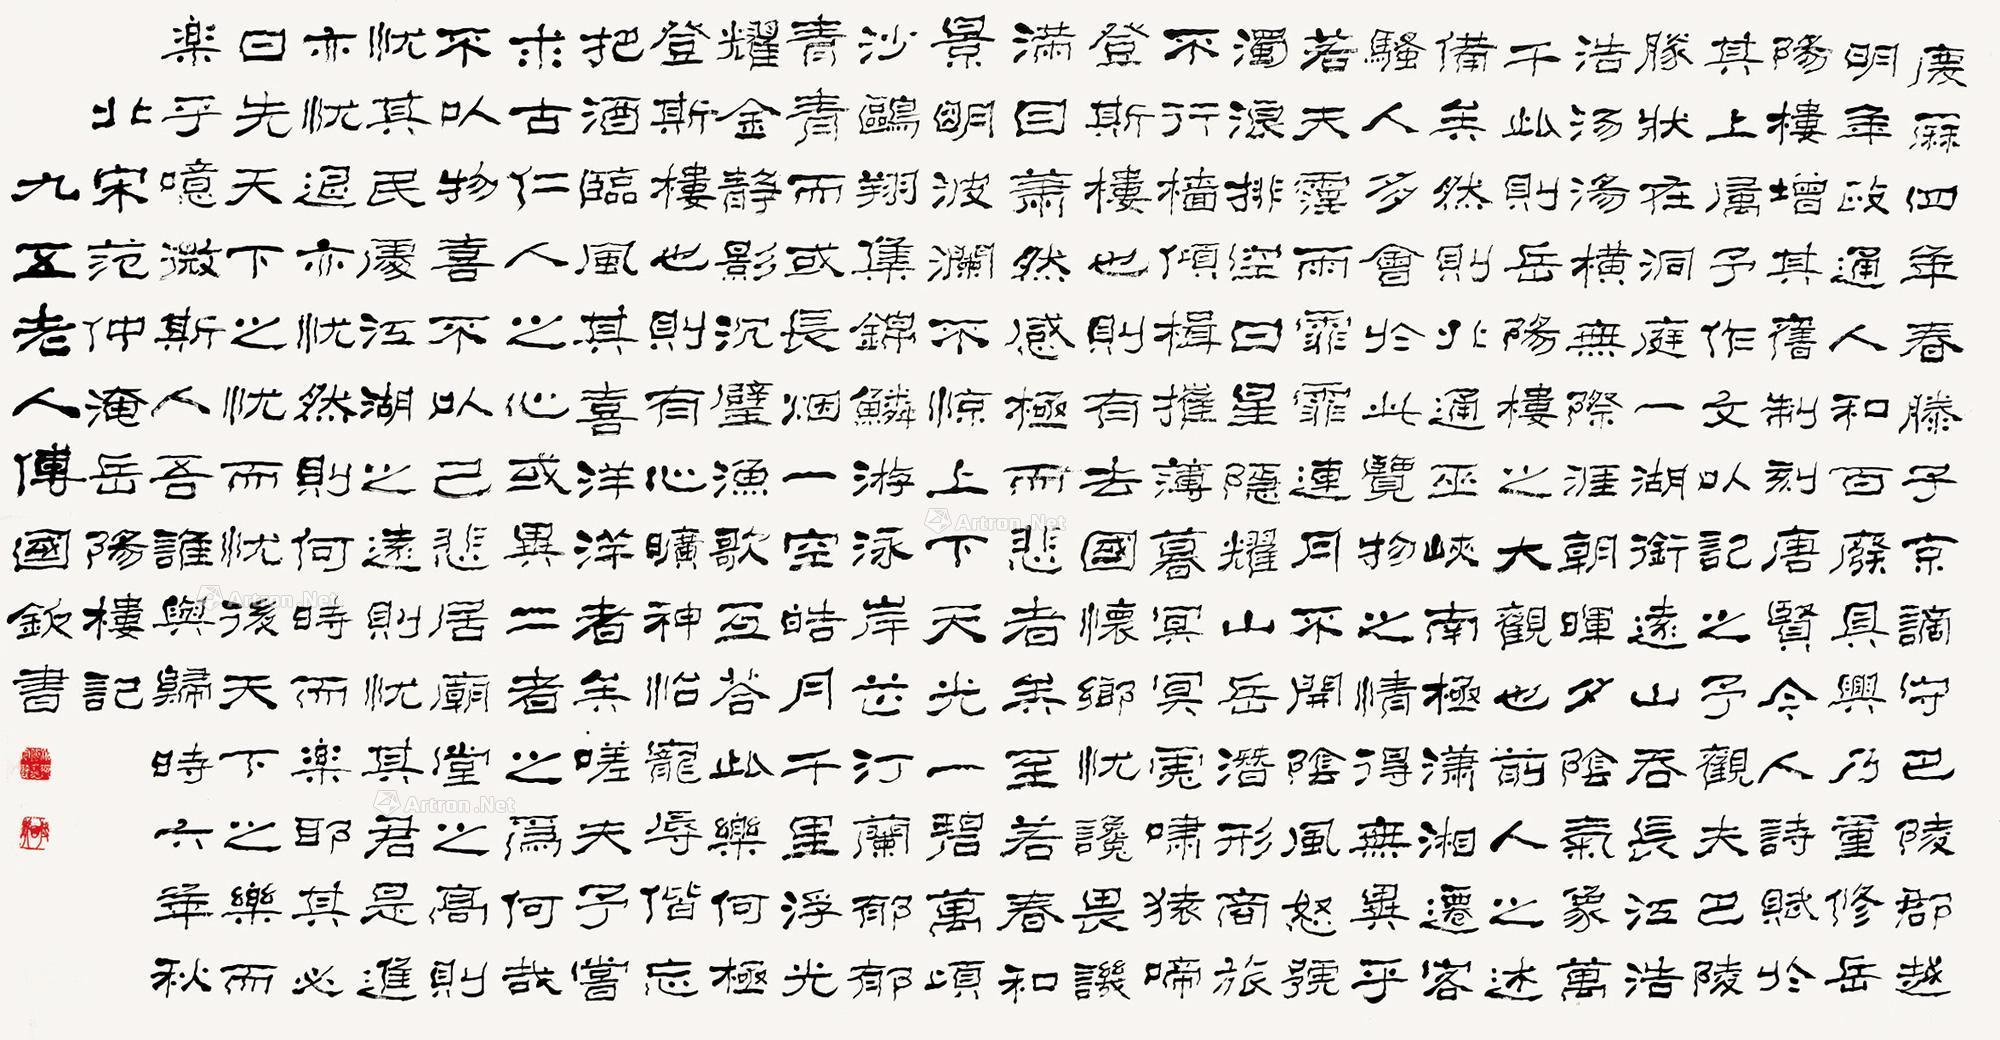 慶厤四年春滕子京謫守巴陵郡越
明年政通人和百廢具興乃重修岳
陽樓增其舊制刻唐賢今人詩賦於
其上属予作文以記之予觀夫巴陵
勝狀在洞庭一湖銜遠山吞長江浩
浩汤湯橫無際涯朝暉夕陰氣象萬
千此則岳陽樓之大觀也前人之述
備矣然則北通巫峽南極瀟湘遷客
騷人多會於此覽物之情得無異乎
若夫霪雨霏霏連月不開陰風怒號
濁浪排空日星隱耀山岳潛形商旅
不行檣傾楫摧薄暮冥冥虎嘯猿啼
登斯樓也則有去國懷鄉忧讒畏譏
满目蕭然感極而悲者矣至若春和
景明波瀾不惊上下天光一碧萬頃
沙鷗翔集錦鱗游泳岸芷汀蘭郁郁
青青而或長烟一空皓月千里浮光
耀金静影沉璧漁歌互答此樂何極
登斯樓也則有心曠神怡寵辱偕忘
把酒臨風其喜洋洋者矣嗟夫予嘗
求古仁人之心或異二者之爲何哉
不以物喜不以己悲居廟堂之高則
忧其民處江湖之遠則忧其君是進
亦忧退亦忧然則何時而楽耶其必
曰先天下之忧而忧後天下之樂而
楽乎噫微斯人吾誰與歸時六年秋
北宋范仲淹岳陽樓記
九五老人傅國欽書
Artron.Net
Artron.Net
Artron.Net